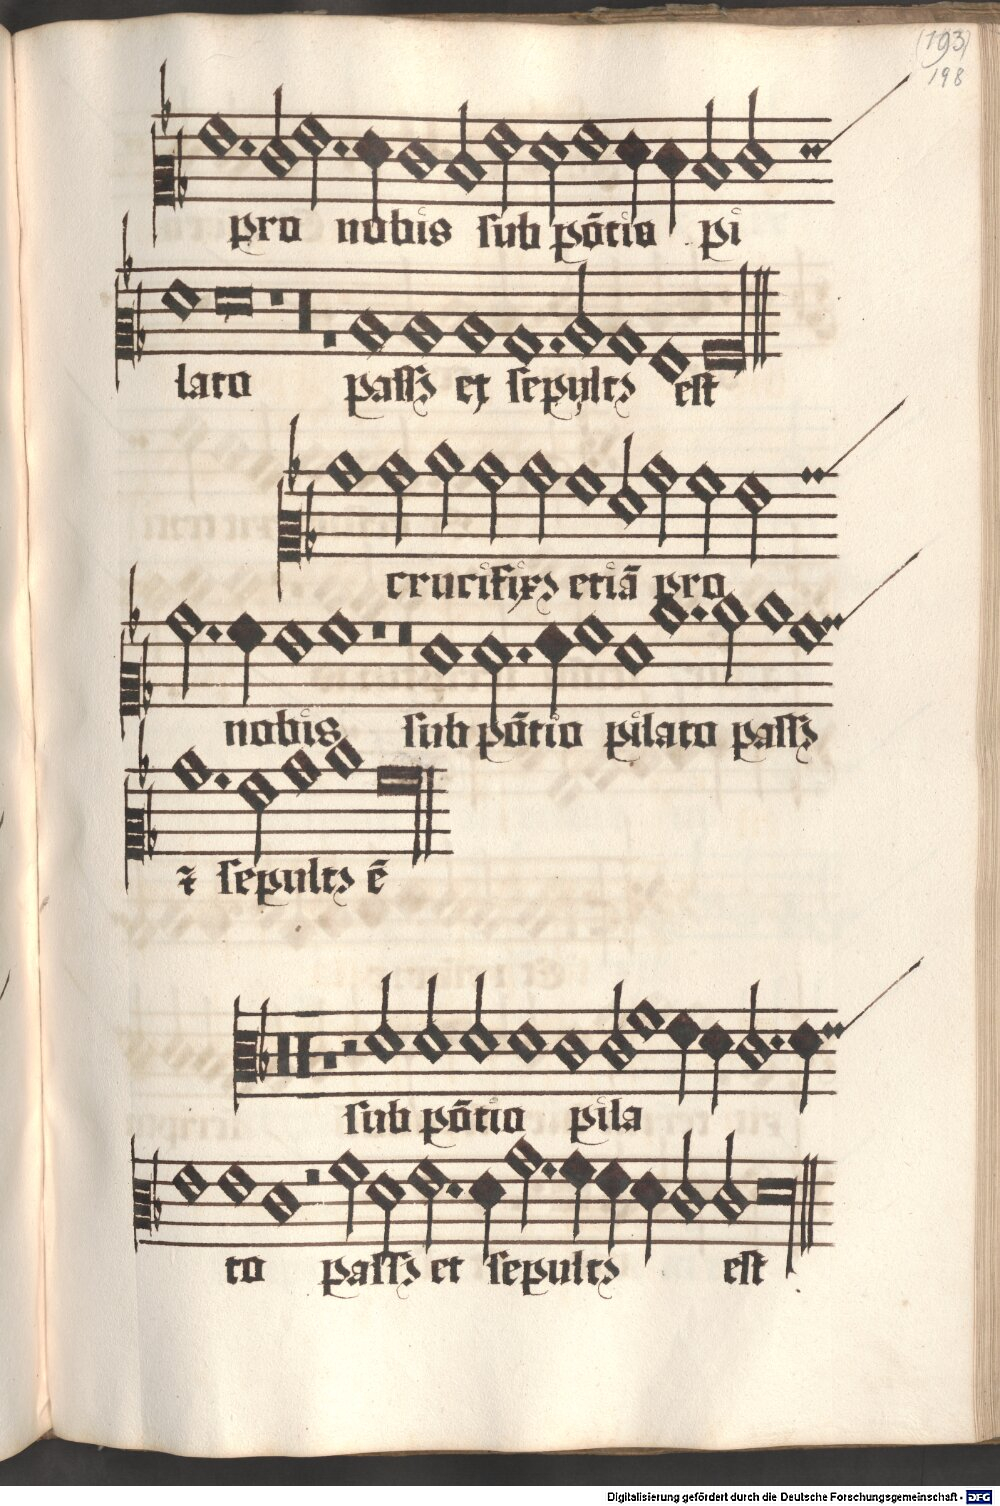 (193)
198
pro nobis sub põtio pi
lato passꝫ et sepultꝫ est
crucifixꝫ etiã pro
nobis sub põtio pilato passꝫ
⁊ sepultꝫ ẽ
sub põtio pila
to passꝫ et sepultꝫ est
Digitalisierung gefördert durch die Deutsche Forschungsgemeinschaft - DFG